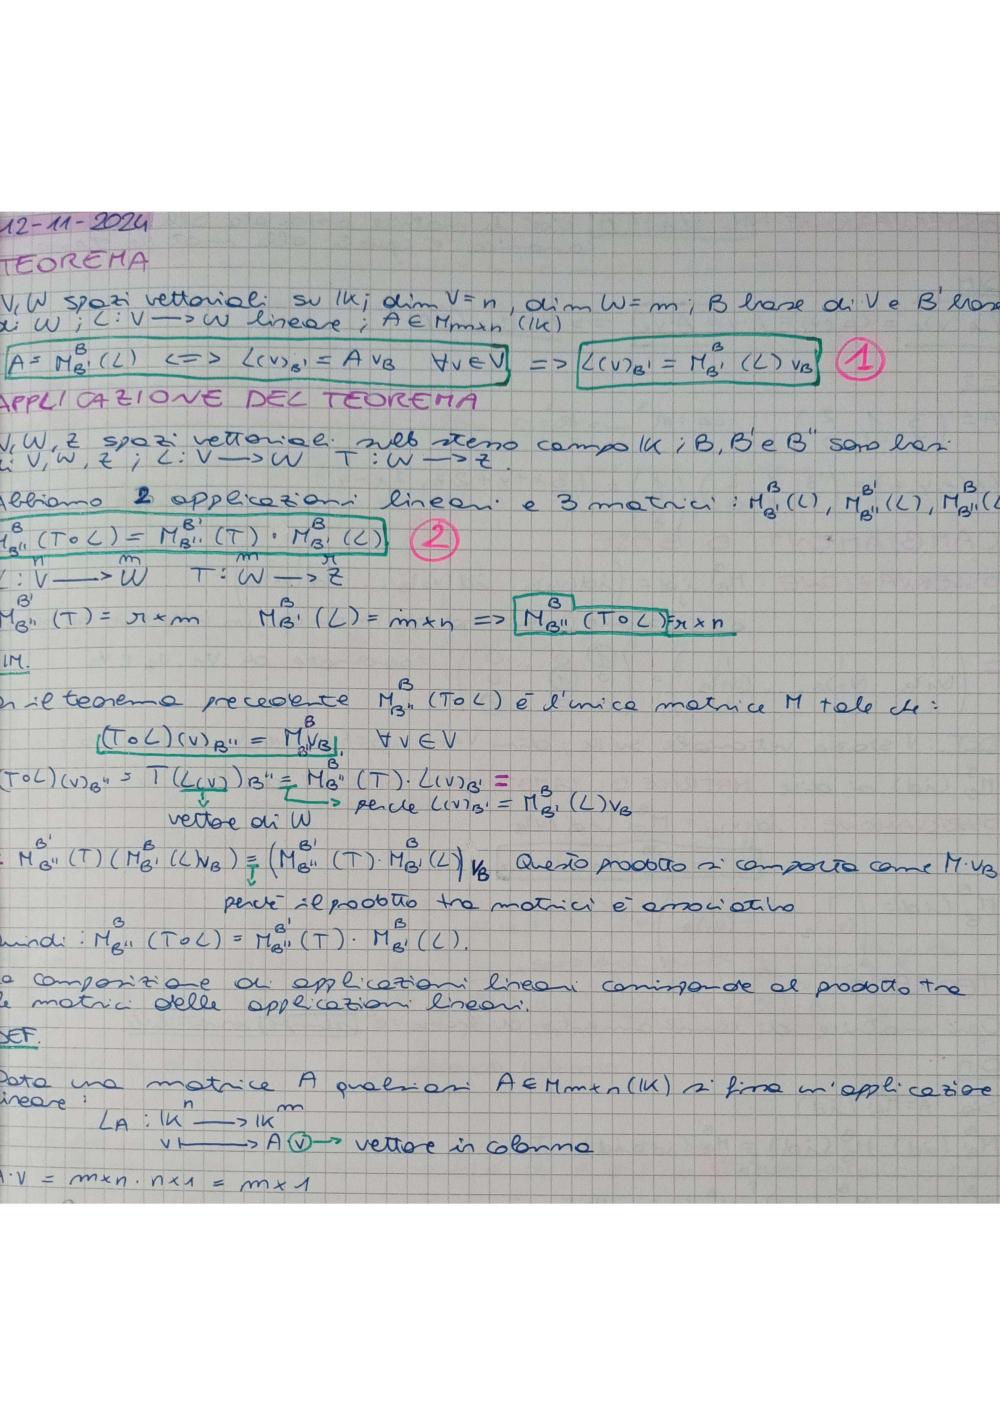 12-11-2024
TEOREMA
V, W spazi vettoriali su IK; dim V = n, dim W = m; B base di V e B' base
di W; L: V → W lineare; A ∈ Mm×n (IK)
A = M^B_B' (L) <=> L(v)_B' = A v_B ∀v∈V => L(v)_B' = M^B_B' (L) v_B 1
APPLICAZIONE DEL TEOREMA
V, W, Z spazi vettoriali sullo stesso campo IK; B, B' e B'' sono basi
di V, W, Z; L: V → W T: W → Z.
Abbiamo 2 applicazioni lineari e 3 matrici: M^B_B' (L), M^B'_B'' (L), M^B_B'' (L
M^B_B'' (T∘L) = M^B'_B'' (T) · M^B_B' (L) 2
L: V^n → W^m T: W^m → Z^r
M^B'_B'' (T) = r×m M^B_B' (L) = m×n => M^B_B'' (T∘L) = r×n
IM.
il teorema precedente M^B_B'' (T∘L) è l'unica matrice M tale che:
(T∘L)(v)_B'' = M^B_B'' v_B ∀v∈V
(T∘L)(v)_B'' = T(L(v))_B'' = M^B_B'' (T) · L(v)_B' =
→ perché L(v)_B' = M^B_B' (L) v_B
vettore di W
= M^B'_B'' (T) (M^B_B' (L) v_B) = (M^B'_B'' (T) · M^B_B' (L)) v_B Questo prodotto si comporta come M·v_B
perché il prodotto tra matrici è associativo
uindi: M^B_B'' (T∘L) = M^B'_B'' (T) · M^B_B' (L).
a composizione di applicazioni lineari corrisponde al prodotto tra
le matrici delle applicazioni lineari.
DEF.
Data una matrice A qualsiasi A ∈ Mm×n (IK) si fissa un'applicazione
lineare:
L_A : IK^n → IK^m
v ↦ A v → vettore in colonna
A·v = m×n · n×1 = m×1